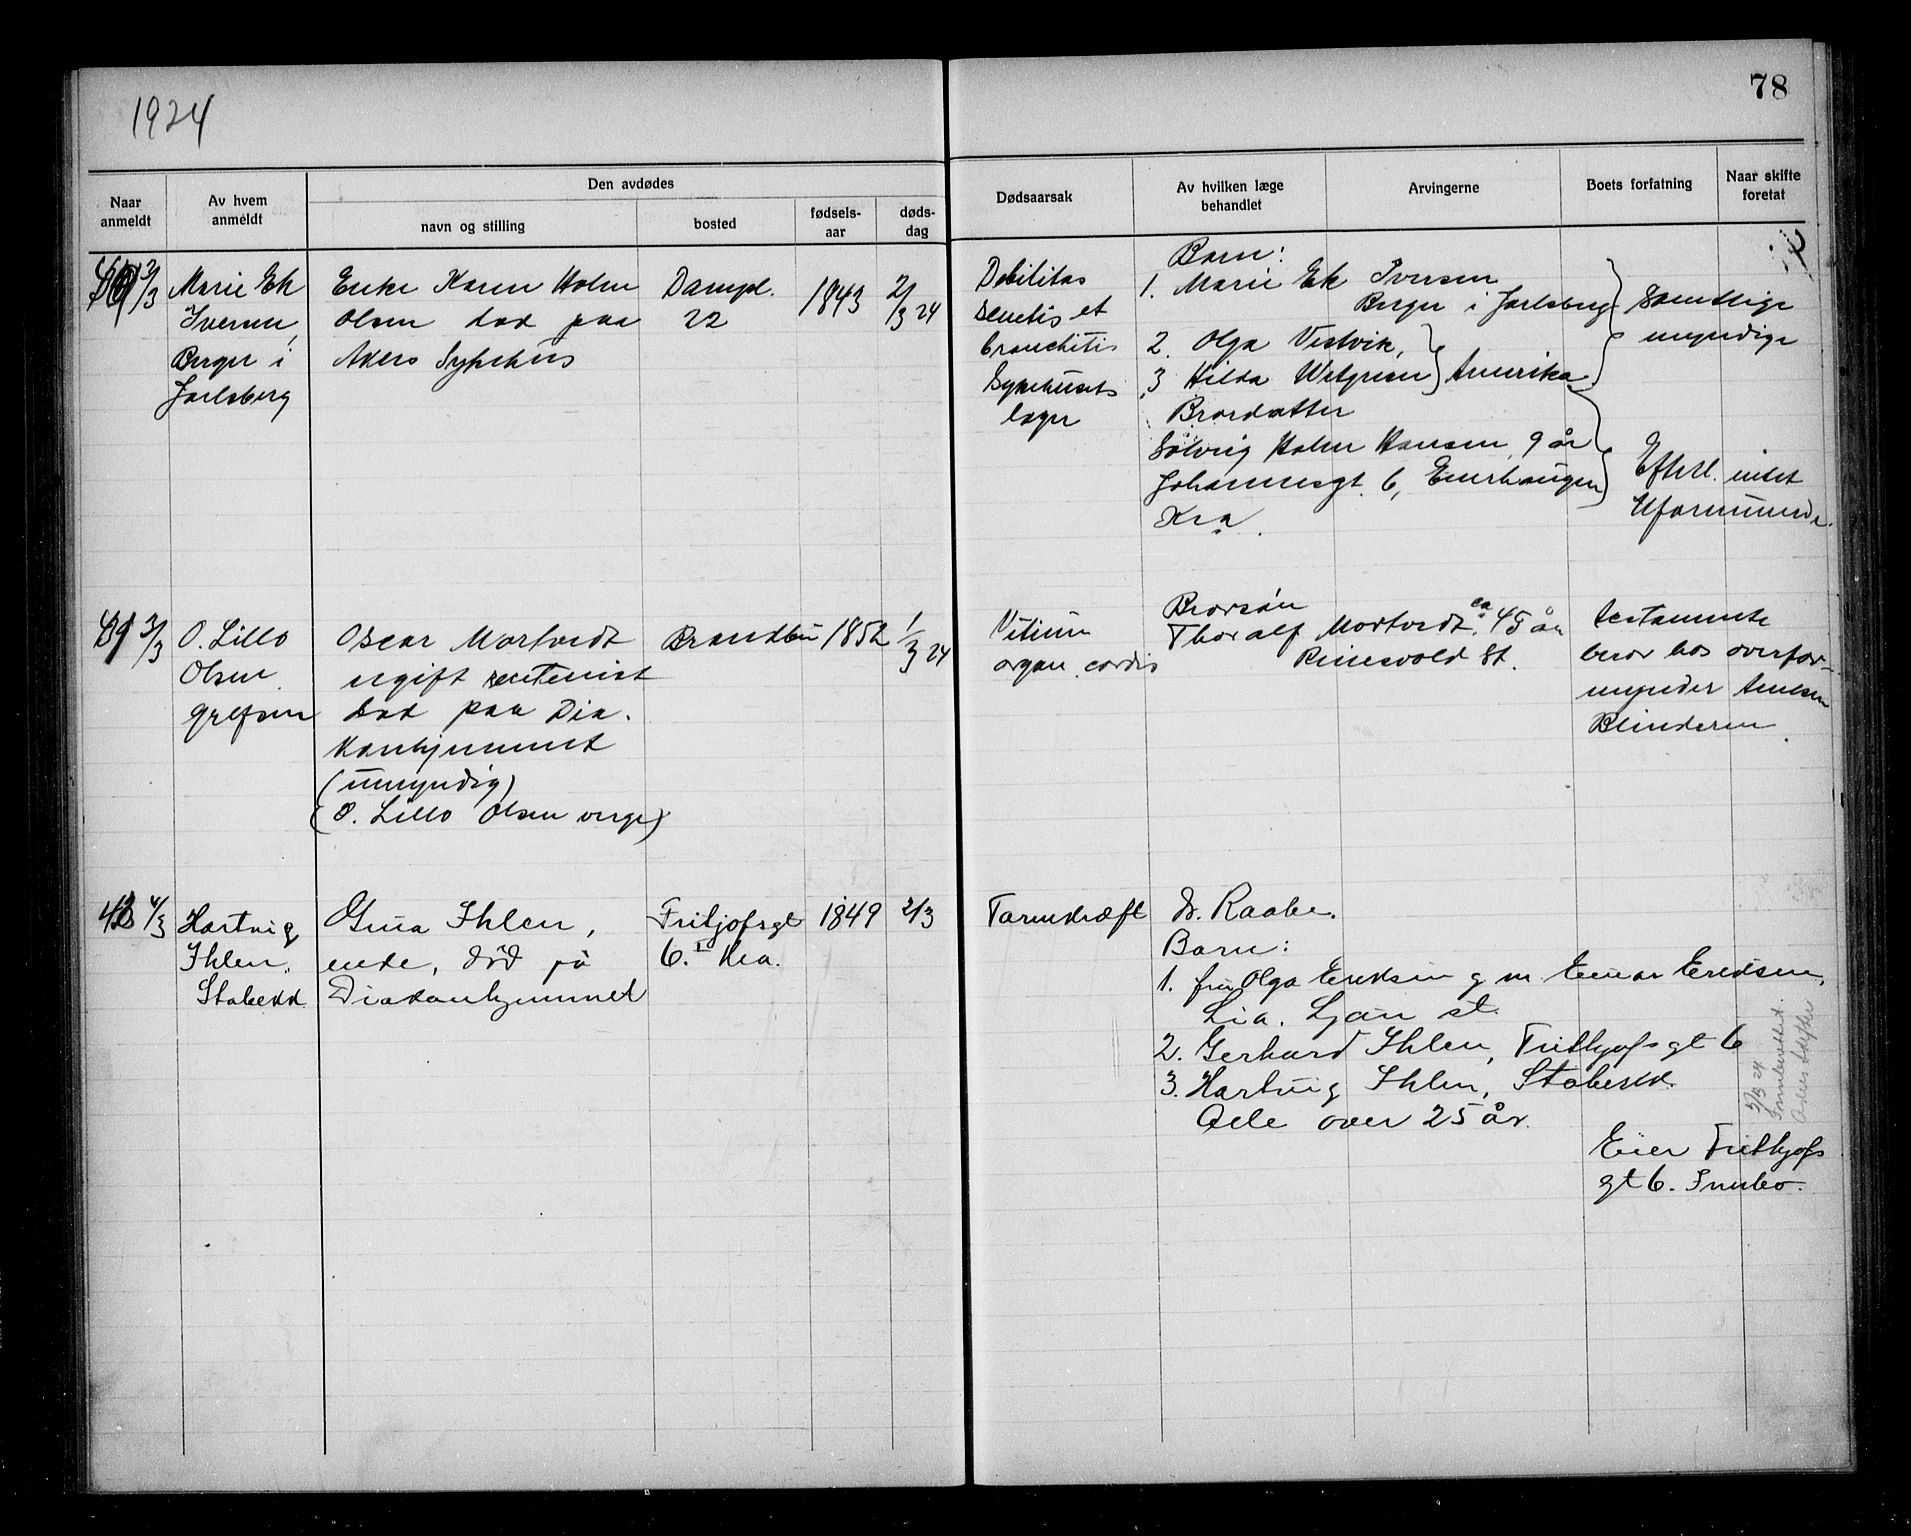 1924
78
Naar anmeldt
Av hvem anmeldt
Den avdødes
navn og stilling
bosted
fødsels-aar
døds-dag
Dødsaarsak
Av hvilken læge behandlet
Arvingerne
Boets forfatning
Naar skifte foretat
3/3
Marie Ek
Iversen,
Berger i
Jarlsberg
Enke Karen Holm
Olsen død paa
Akers Sykehus
Dampl.
22
1843
2/3 24
Debilitas
senelis et
bronchitis
Sykehusets
læger
Barn:
1. Marie Ek Iversen
Berger i Jarlsberg
2. Olga Vestvik,
3 Hilda Wetgresen } Amerika
Brordatter
Solveig Holm Hansen, 9 år
Johannesgt. 6, Enerhaugen
Kra.
Samtlige
umyndige
Efterl. intet
Uformuende.
3/3
O. Lillo
Olsen
Grefsen
Oscar Mortvedt
ugift rentenist
død paa Dia.
konhjemmet
(umyndig)
(O. Lillo Olsen verge)
Brandbu
1852
1/3 24
Vitium
organ. cordis
Brorsön
Thoralf Mortvedt, ca. 45 år
Rinesvold St.
testamente
beror hos overfor-
mynder Amlsen
Blinderen.
4/3
Hartvig
Ihlen,
Stabekk
Gina Ihlen,
enke, död på
Diakonhjemmet
Fritjofsgt
6. I Kra.
1849
2/3
Tarmkræft
Dr. Raabe.
Barn:
1. fru Olga Eriksen g. m. Einar Eriksen,
Lia. Ljan st.
2. Gerhard Ihlen, Frithjofsgt 6
3. Hartvig Ihlen, Stabekk.
Alle over 25 år.
Eier Frithjofs
gt 6. Innbo.
5/3 24
Akers skifter